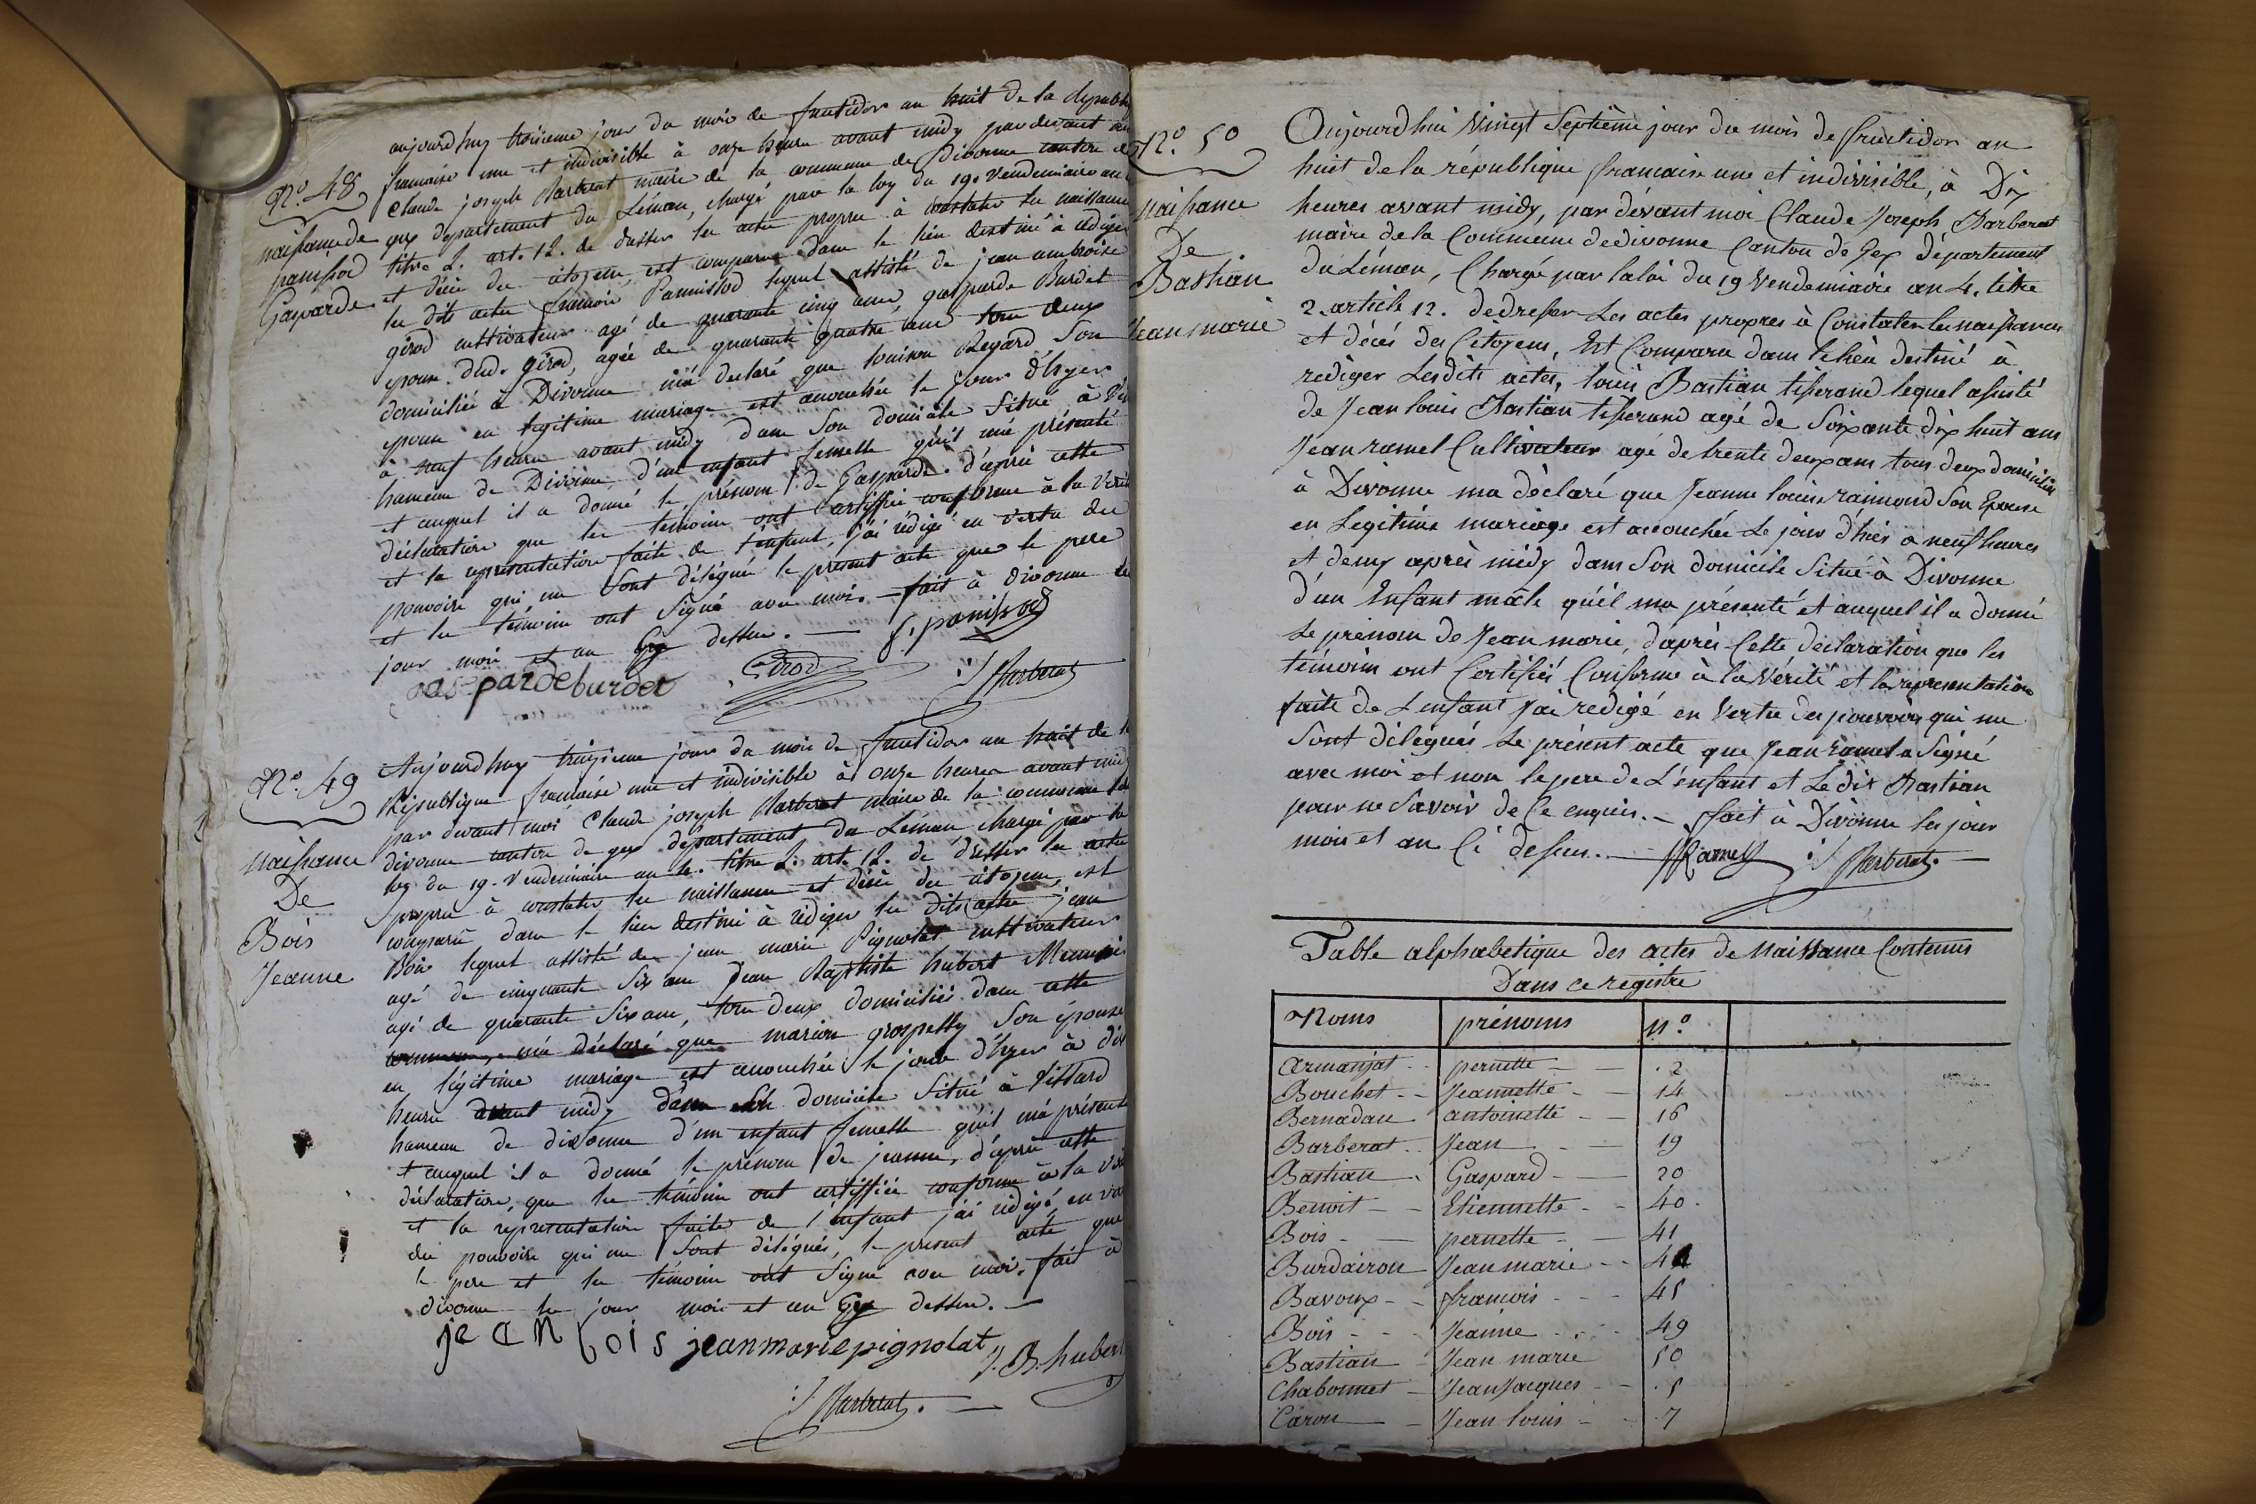 N.o 48
naissance de
panissod
Gasparde
aujourd'huy troisieme jour du mois de fructidor an huit de la republi
francaise une et indivisible à onze heure avant midy par devant
Claude joseph Barberat maire de la commune de Divonne canton de
gex departement du Léman, chargé par la loy du 19. Vendemiaire an
titre 2. art. 12. de dresser les actes propre à constater les naissance
et décès des citoyens, est comparu dans le lieu destiné à rédiger
les dits actes francois Pannissod lequel assisté de jean ambroise
girod cultivateur agé de quarante cinq ans, gasparde Burdet
epouse dud. girod, agée de quarante quatre ans tous deux
domiciliés à Divonne m'a declaré que louison Regard Son
epouse en legitime mariage est accouchée le jour d'hyer
à neuf heure avant midy dans Son domicile Situé à
hameau de Divonne, d'un enfant femelle qu'il m'a présenté
et auquel il a donné le prénom de Gasparde. d'après cette
déclaration que les temoins ont certiffié conforme à la vérité
et la representation faite de l'enfant, j'ai rédigé en vertu des
pouvoirs qui me sont délégués le present acte que le pere
et les témoins ont Signé avec moi. — fait à divonne les
jour mois et an Cy dessus. — f. panissod
gaspardeburdet Girod J Barberat
N.o 49
naissance
De
Bois
Jeanne
Aujourd'huy treizieme jour du mois de fructidor an huit de la
République francaise une et indivisible à onze heure avant midy
par devant moi Claude joseph Barberat maire de la commune de
divonne canton de gex département du Léman chargé par la
loy du 19. Vendemiaire an 4. titre 2. art. 12. de dresser les actes
propre à constater les naissances et décès des citoyens, est
comparu dans le lieu destiné à rédiger les dits actes jean
Bois lequel assisté de jean marie Pignolat cultivateur
agé de cinquante Six ans jean Baptiste hubert Meunier
agé de quarante Six ans, tous deux domiciliés dans cette
commune, m'a déclaré que marion grospelly Son épouse
en légitime mariage est accouchée le jour d'hyer à dix
heure avant midy dans Son domicile Situé à Villard
hameau de divonne d'un enfant femelle qu'il m'a présenté
et auquel il a donné le prénom de jeanne, d'après cette
déclaration, que les témoins ont certiffiée conforme à la
et la representation faite de l'enfant j'ai rédigé en
des pouvoirs qui me Sont délégués, le present acte que
le pere et les témoins ont Signe avec moi. fait à
divonne les jour mois et an Cy dessus. —
jeAN bois jeanmariepignolat J. B. hubert
J Barberat. —
N.o 50
naissance
De
Bastian
Jean marie
Aujourd'hui Vingt Septième jour du mois de fructidor an
huit de la république francaise une et indivisible, à Dix
heures avant midy, par dévant moi Claude Joseph Barberat
maire de la Commune de divonne Canton de Gex département
du Léman, Chargé par la loi du 19 Vendemiaire an 4. titre
2. article 12. de dresser Les actes propres à Constater les naissances
et décés des Citoyens, Est Comparu dans le lieu destiné à
rédiger Lesdits actes, louis Bastian tisserand lequel assisté
de Jean louis Bastian tisserand agé de Soixante dix huit ans
Jean ramel Cultivateur agé de trente deux ans tous deux domiciliés
à Divonne ma déclaré que Jeanne louise raimond Son Epouse
en Legitime mariage est accouchée Le jour d'hier à neuf heures
et demy après midy dans Son domicile Situé à Divonne
d'un Enfant mâle qu'il ma présenté et auquel il a donné
Le prénom de Jean marie, daprès Cette déclaration que les
témoins ont Certifié Conforme à la Vérité et la representation
faite de L'enfant J'ai redigé en Vertu des pouvoirs qui me
Sont délégués Le présent acte que Jean ramel a Signé
avec moi et non le pere de L'enfant et Le dit Bastian
pour ne Savoir de Ce enquis. — ffait à Divonne les jour
mois et an Ci dessus. — Ramel J Barberat. —
Table alphabetique des actes de Naissance Contenus
Dans ce registre
Noms prénoms N.o
Armanjat pernette 2
Bouchet Jeannette 14
Bernadau antoinette 16
Barberat Jean 19
Bastian Gaspard 20
Benoit Etiennette 40
Bois pernette 41
Burdairon Jean marie
Bavoux francois 45
Bois Jeanne 49
Bastian Jean marie 50
Chabonnet Jean Jacques 5
Caron Jean louis 7